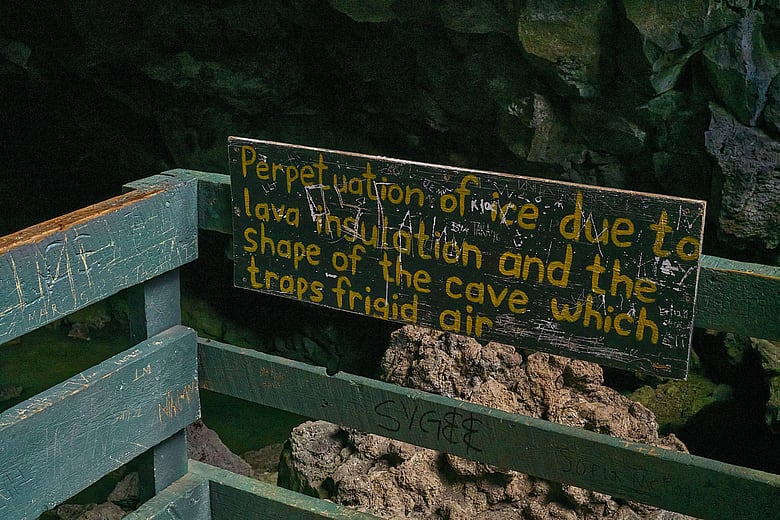 Perpetuation of ice due to
lava insulation and the
shape of the cave which
traps frigid air
SYGEE